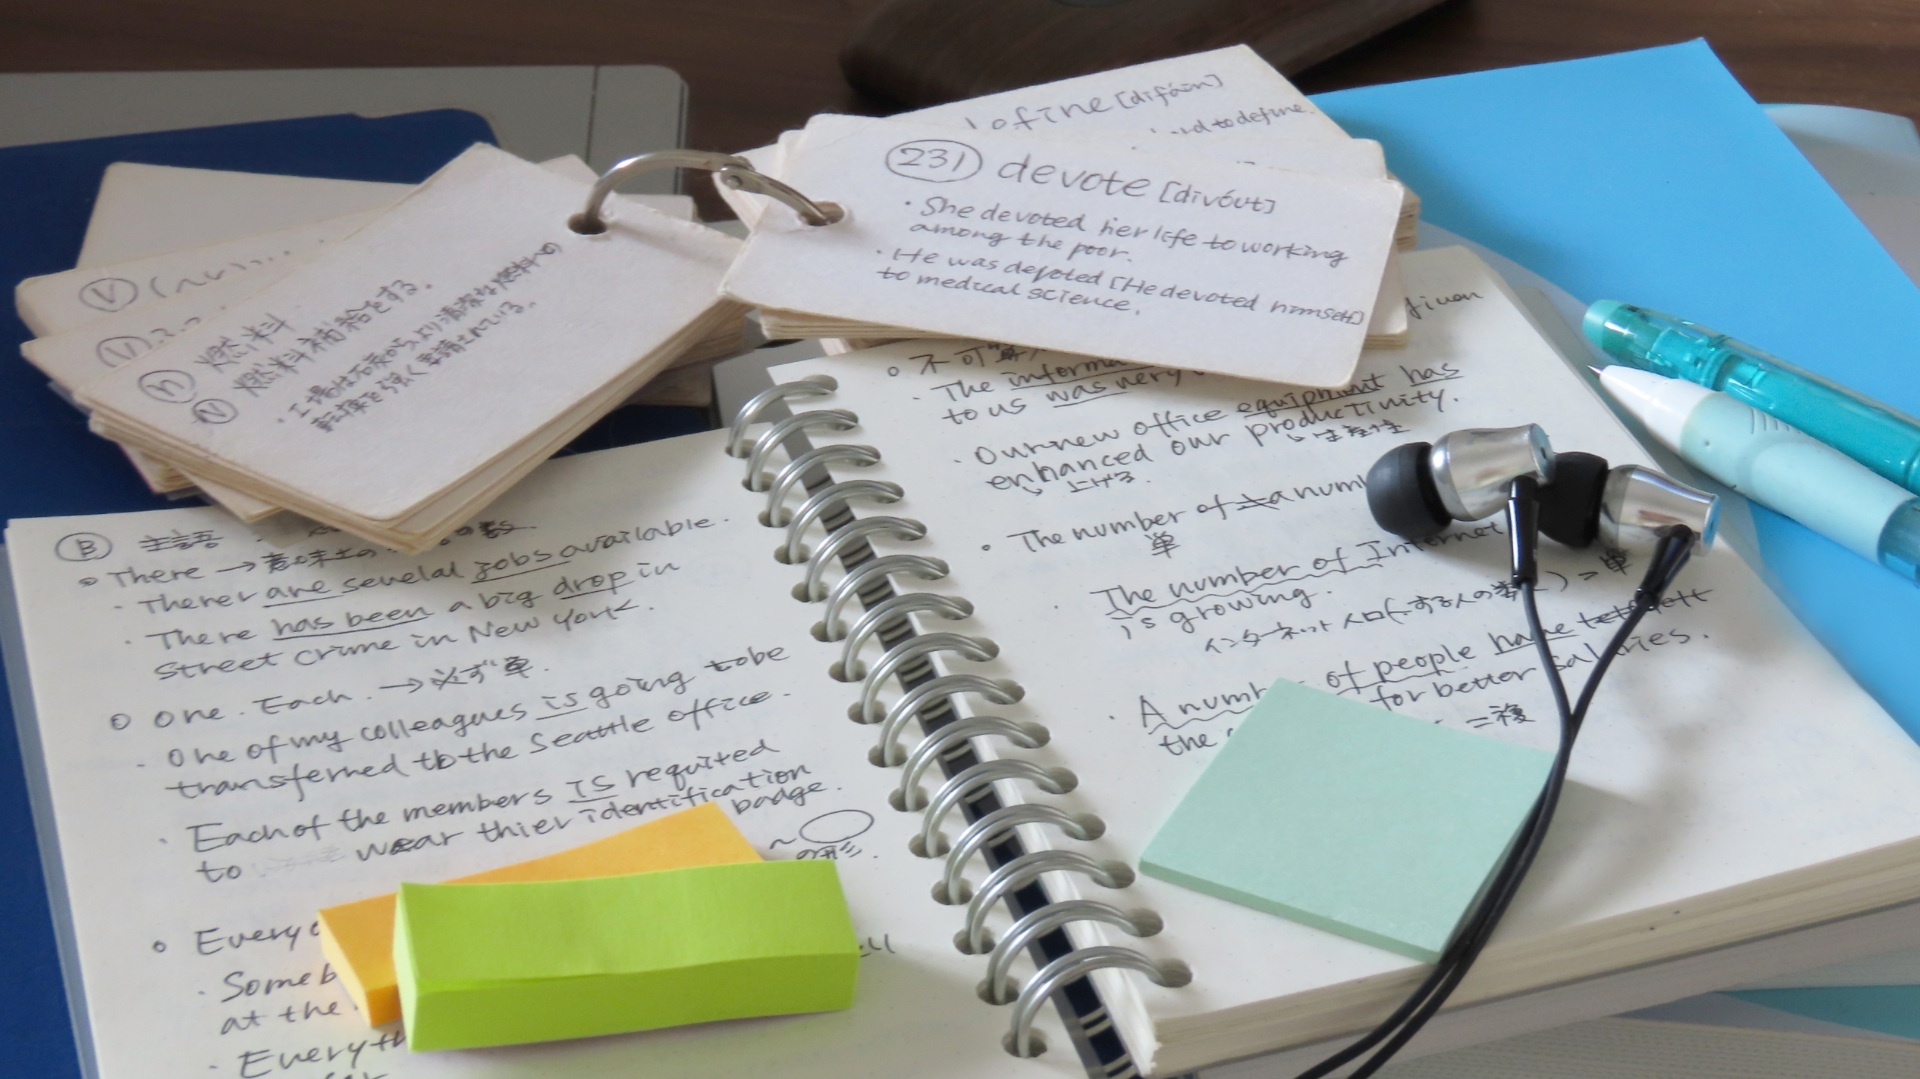 [difáin]
to define.
231 devote [divóut]
・She devoted her life to working
among the poor.
・He was devoted [He devoted himself]
to medical science.
V
V
n 燃料
V 燃料補給をする。
・工場は石炭からより清潔な燃料への
転換を強く要請されている。
given
不可算
・The informa
to us was very
・Our new office equipment has
enhanced our productivity.
生産性
上げる.
The number of a num
単
The number of Internet
is growing.
インターネット人口(する人の数)=単
・A numb of people have left
the for better salaries.
=複
B 主語
There → 意味上の
・Therer are sevelal jobs available.
・There has been a big drop in
street crime in New York.
One. Each. → 必ず単.
・One of my colleagues is going to be
transferred to the Seattle office.
・Each of the members is requited
to wear thier identification
badge.
〜
の形.
Every
・Someb
at the
・Everyth